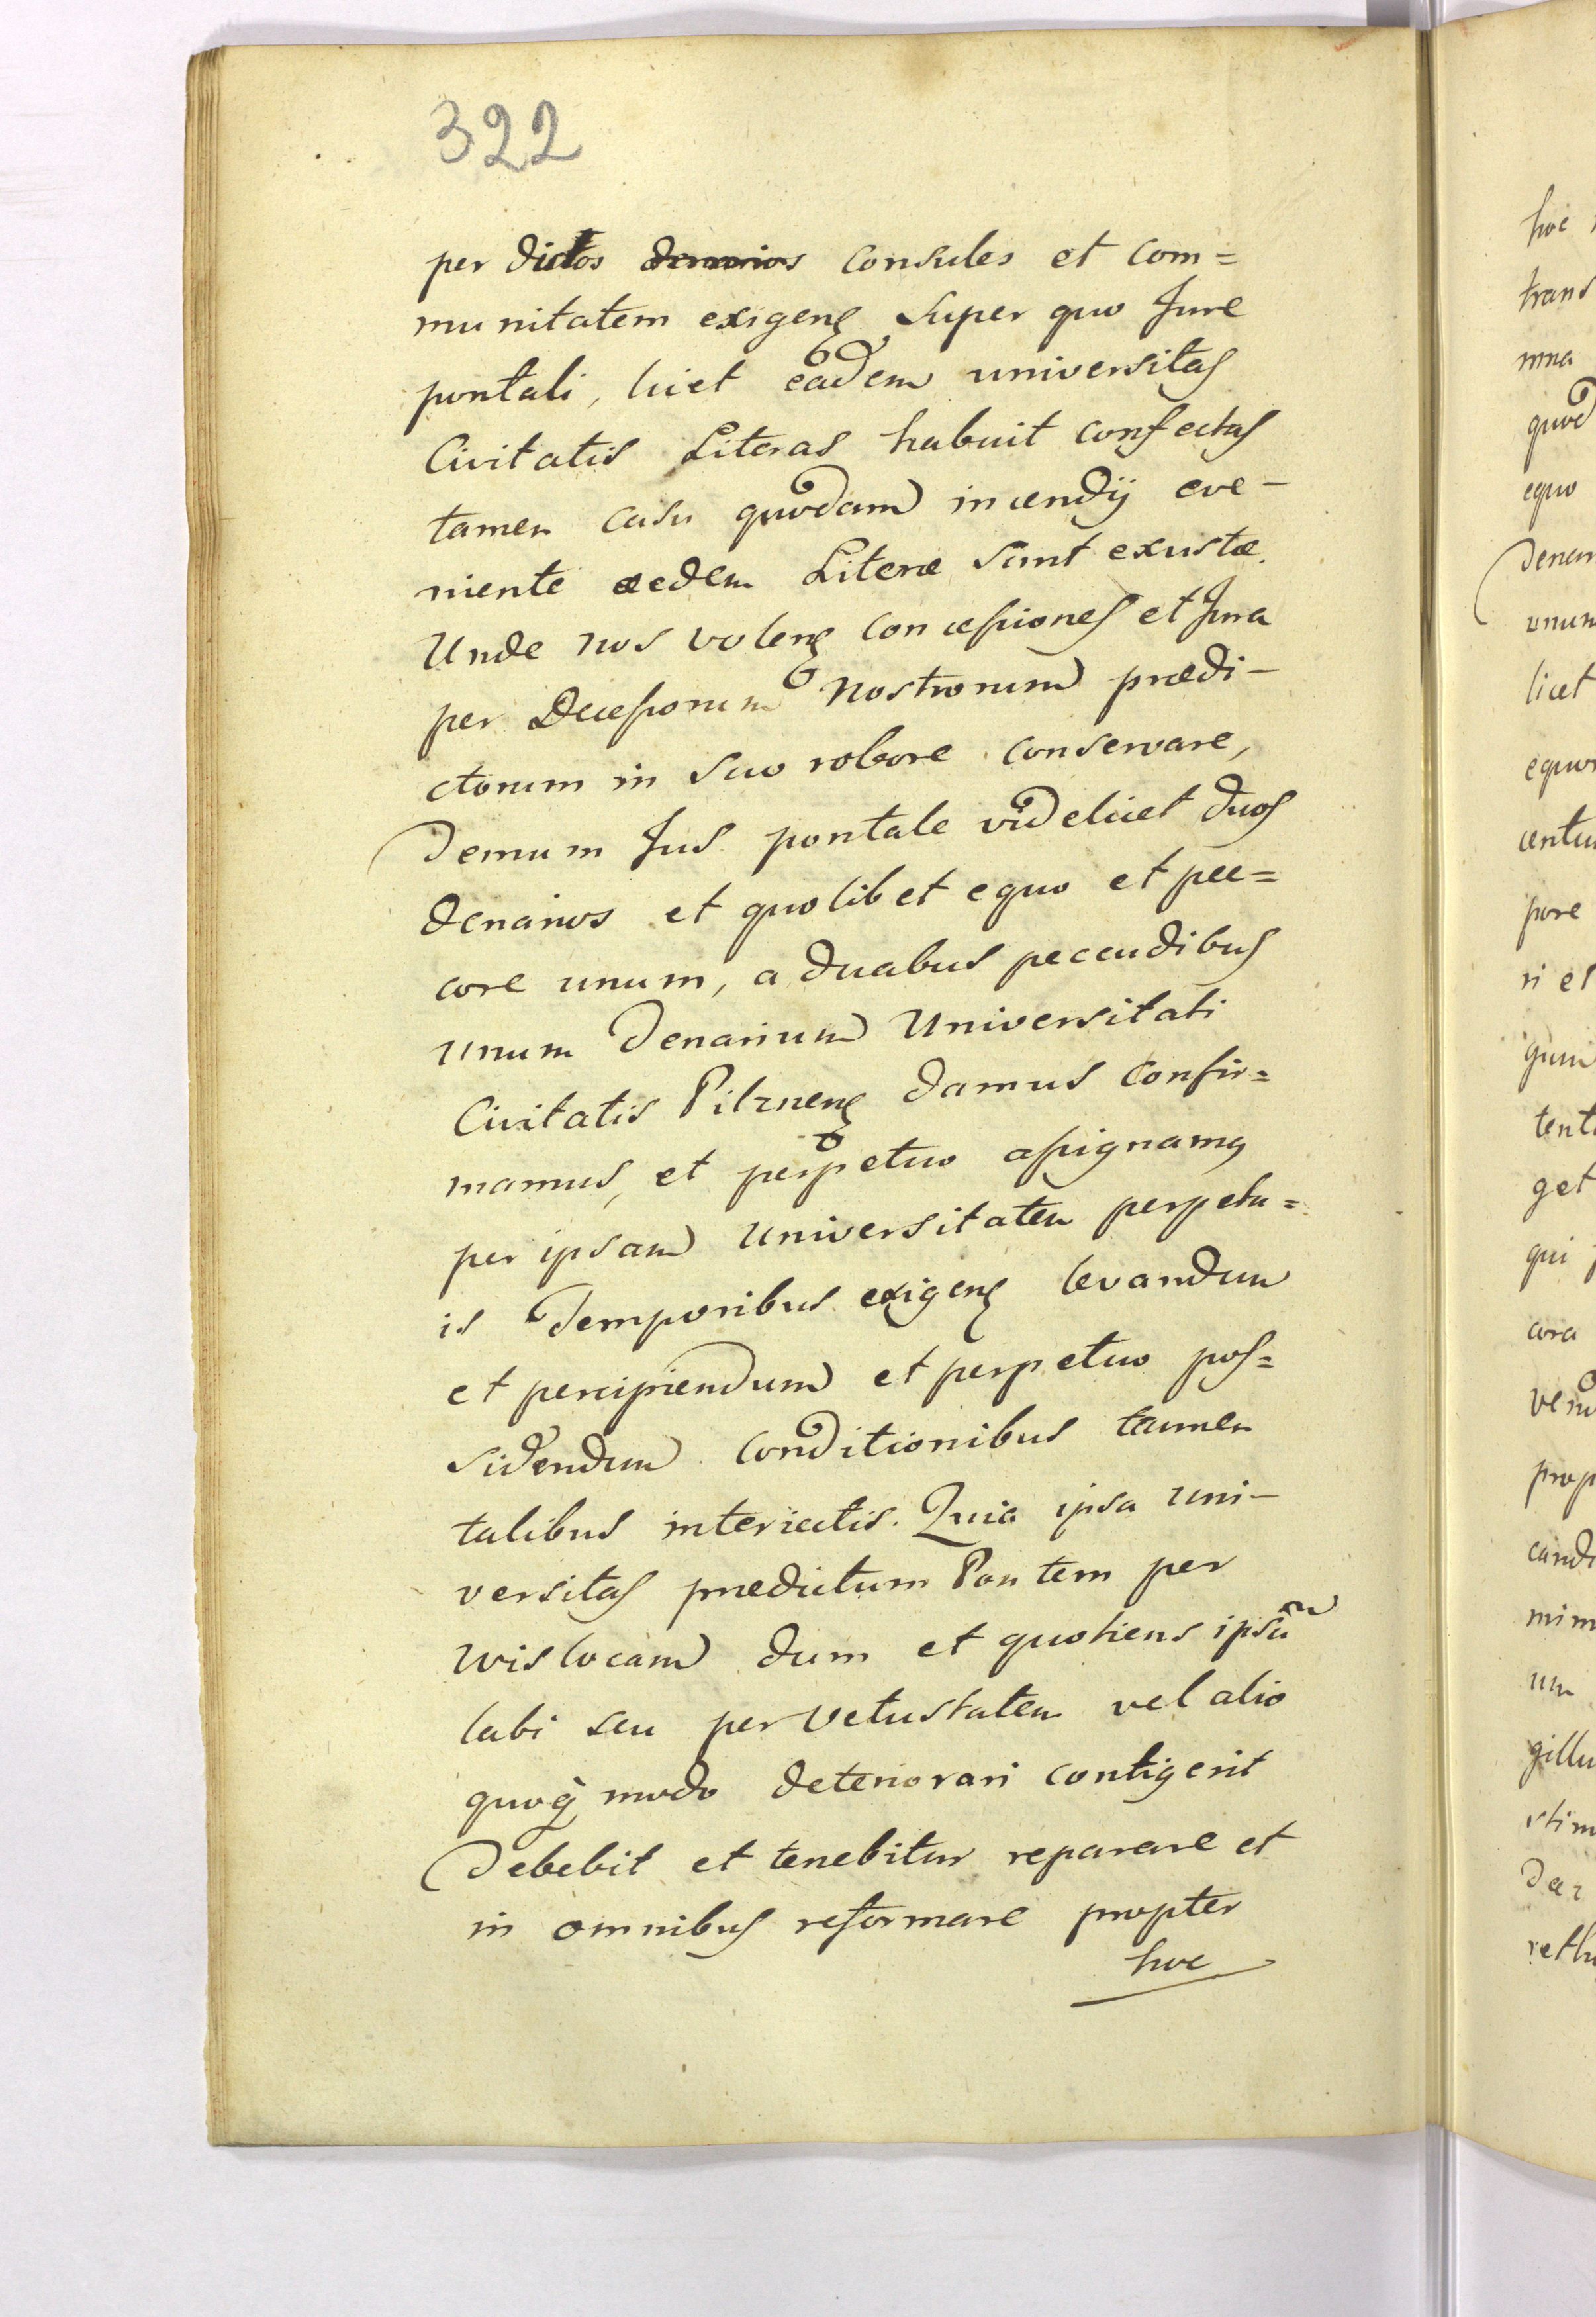 322
per dictos consules et com=
munitatem exigenẽ Super quo Jure
pontali, licet eadem universitas
Civitatis Literas habuit confectas
tamen casu quodam incendÿ eve-
niente aedem Literae sunt exustae.
Unde nos volenẽ concessiones et Jura
per Decessorum Nostrorum praedi-
ctorum in suo robore conservare,
demum Jus pontale videlicet duos
denarios et quolibet equo et pec=
core unum, a duabus peccudibus
unum Denarium Universitati
Civitatis Pilznenẽ damus confir=
mamus, et perpetuo assignamq
per ipsam Universitatem perpetu=
is Temporibus exigenẽ levandum
et percipiendum et perpetuo pos=
sidendum conditionibus tamen
talibus interiectis. Quia ipsa uni-
versitas praedictum Pontem per
Wislocam dum et quotiens ipsũm
labi seu per vetustatem vel alio
quoq̀ modo deteriorari contigerit
Debebit et tenebitur reparare et
in omnibus reformare propter
hoc
hoc
trans
mna
quod
equo
Denar
unum
licet
equor
centu
pore
ri et
gum
tent
get
qui
cora
veru
prop
cand
mim
um
gillu
stim
Dat
reth